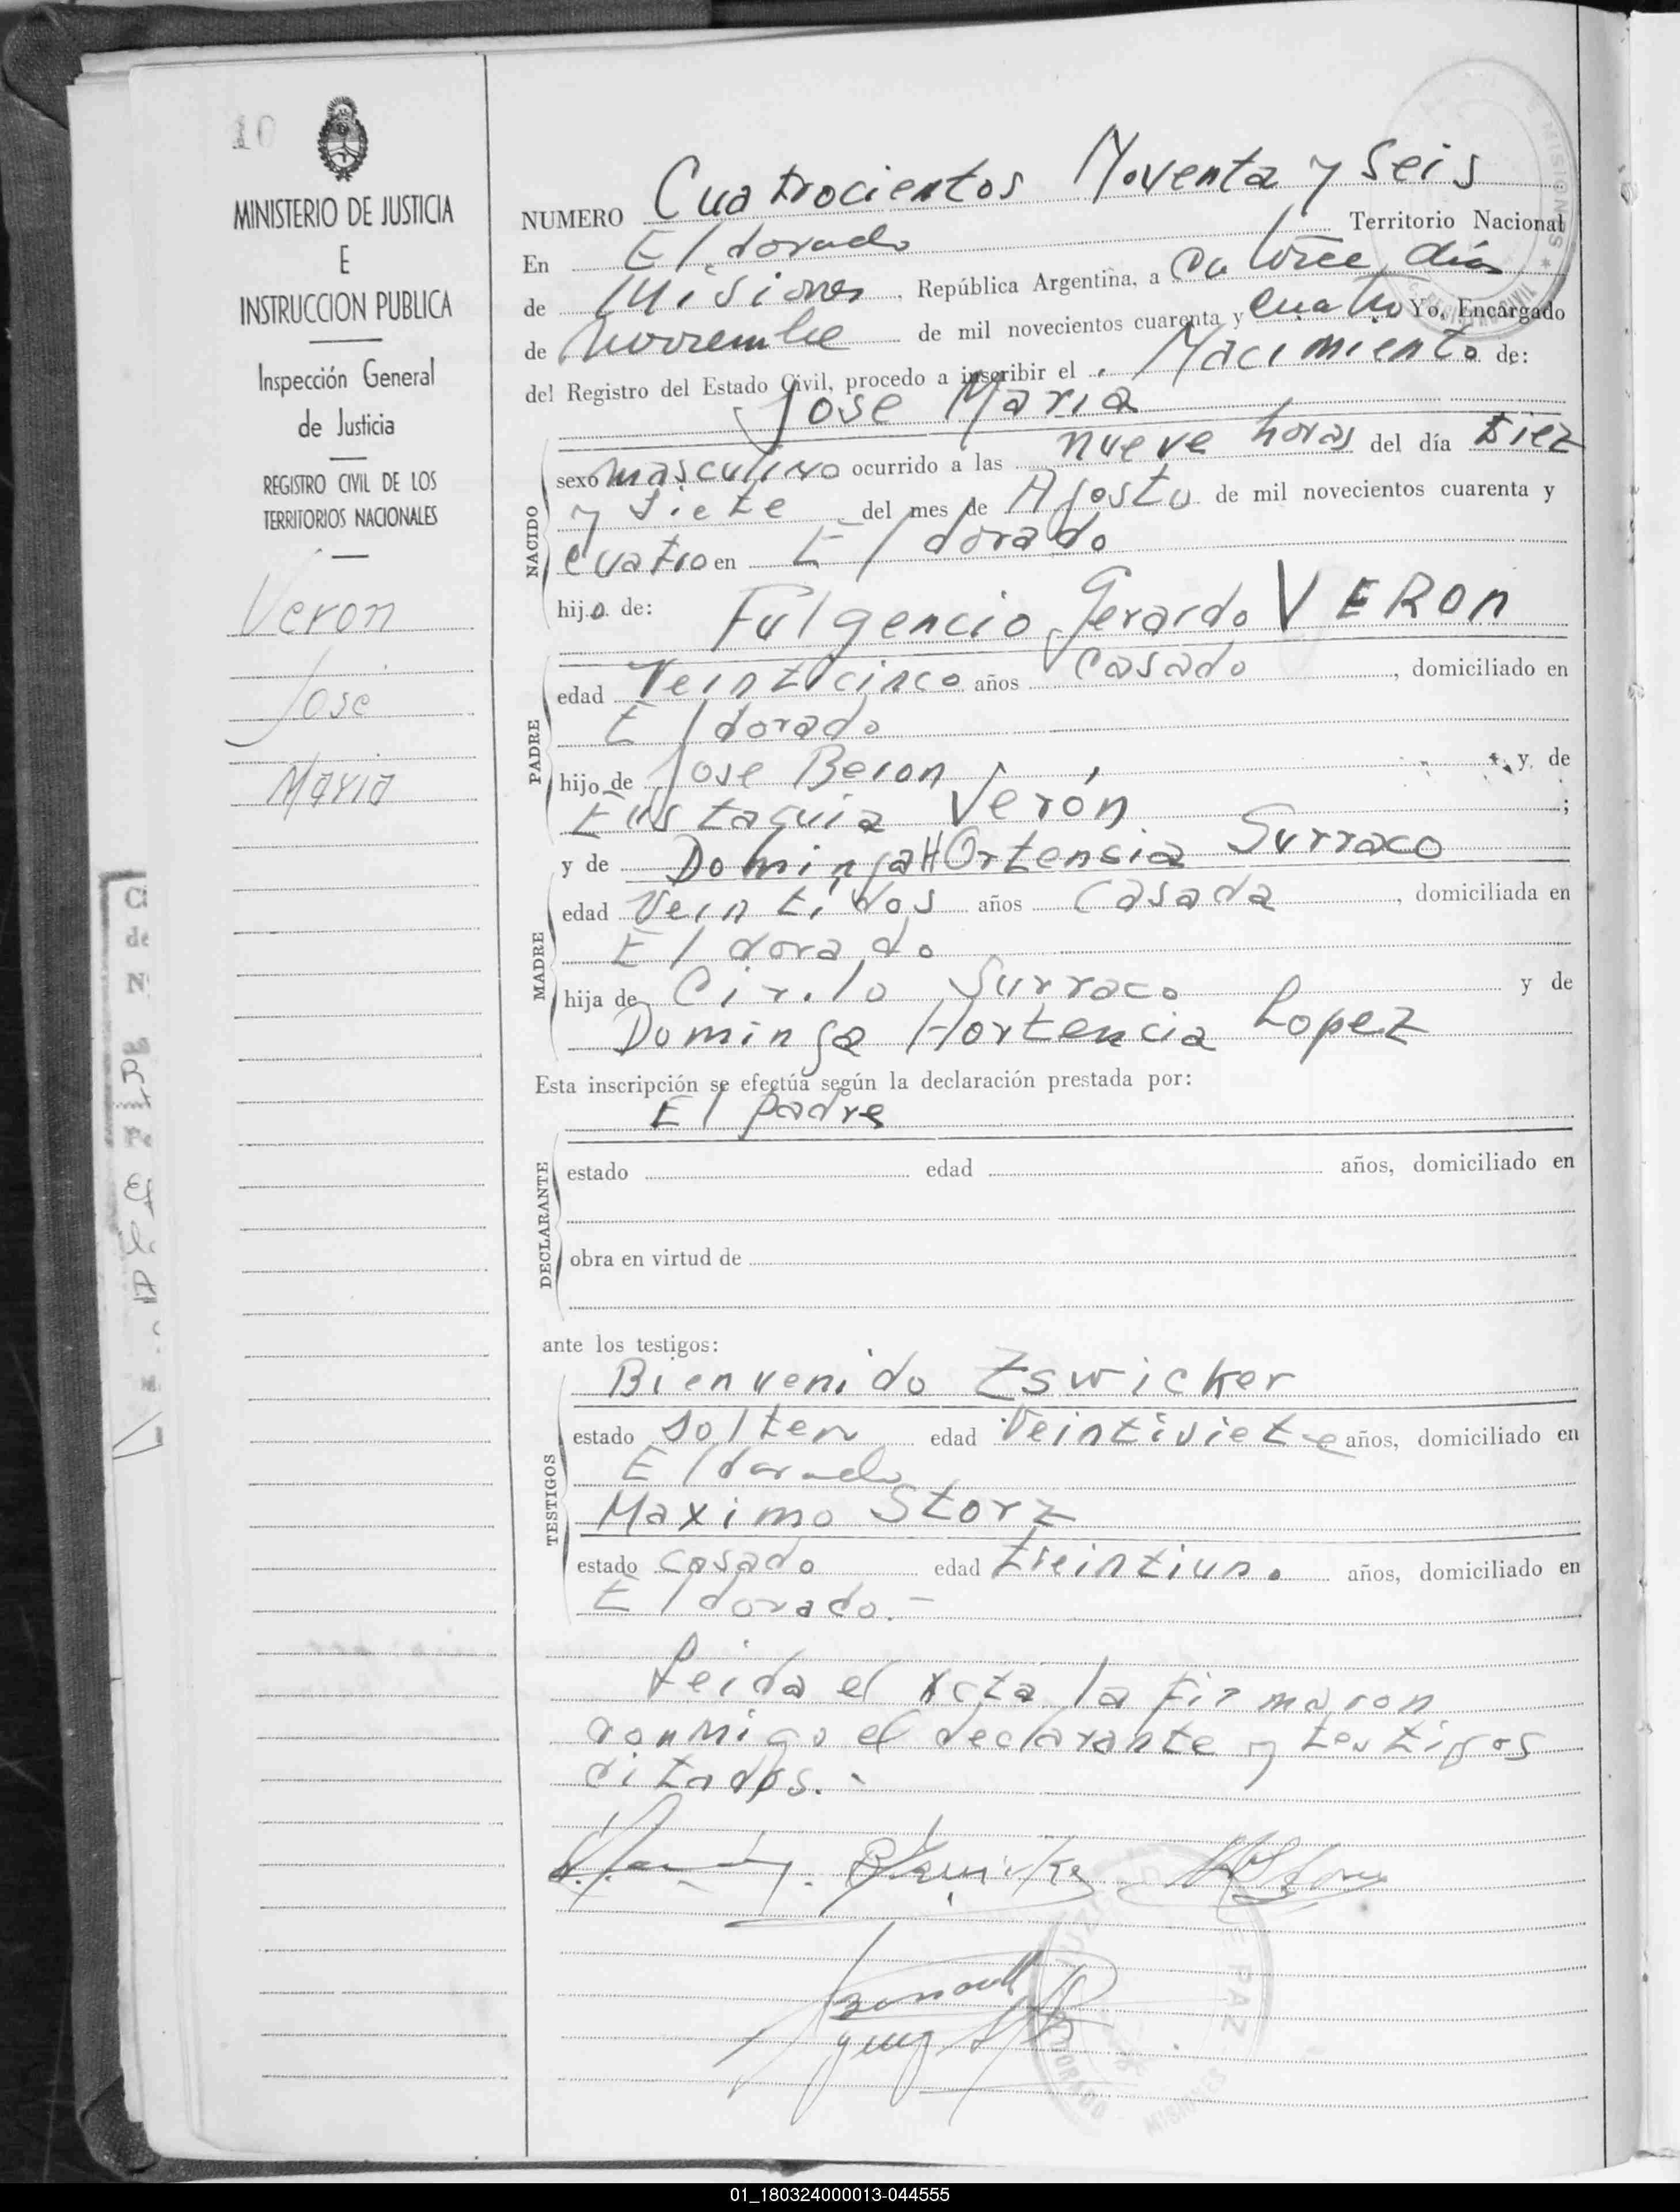 10
MINISTERIO DE JUSTICIA
E
INSTRUCCION PUBLICA
Inspección General
de Justicia
REGISTRO CIVIL DE LOS
TERRITORIOS NACIONALES
Veron
Jose
Maria
NUMERO Cuatrocientos Noventa y Seis
En Eldorado Territorio Nacional
de Misiones, República Argentina, a Catorce días
de Noviembre de mil novecientos cuarenta y cuatro Yo, Encargado
del Registro del Estado Civil, procedo a inscribir el Nacimiento de:
Jose Maria
NACIDO
sexo masculino ocurrido a las nueve horas del día Diez
y Siete del mes de Agosto de mil novecientos cuarenta y
cuatro en Eldorado
hijo de: Fulgencio Gerardo VERON
PADRE
edad Veinticinco años Casado, domiciliado en
Eldorado
hijo de Jose Beron y de
Eustaquia Verón;
y de Dominga HOrtensia Surraco
MADRE
edad Veintidos años Casada, domiciliada en
Eldorado
hija de Cirilo Surraco y de
Dominga Hortencia Lopez
Esta inscripción se efectúa según la declaración prestada por:
El padre
DECLARANTE
estado edad años, domiciliado en
obra en virtud de
ante los testigos:
TESTIGOS
Bienvenido Eswicker
estado Soltero edad Veintisiete años, domiciliado en
Eldorado
Maximo Storz
estado Casado edad treintiuno años, domiciliado en
Eldorado.-
Leida el Acta la firmaron
conmigo el declarante y testigos
citados.-
MISIONES
REGISTRO CIVIL
PAZ
ELDORADO
MISIONES
01_180324000013-044555